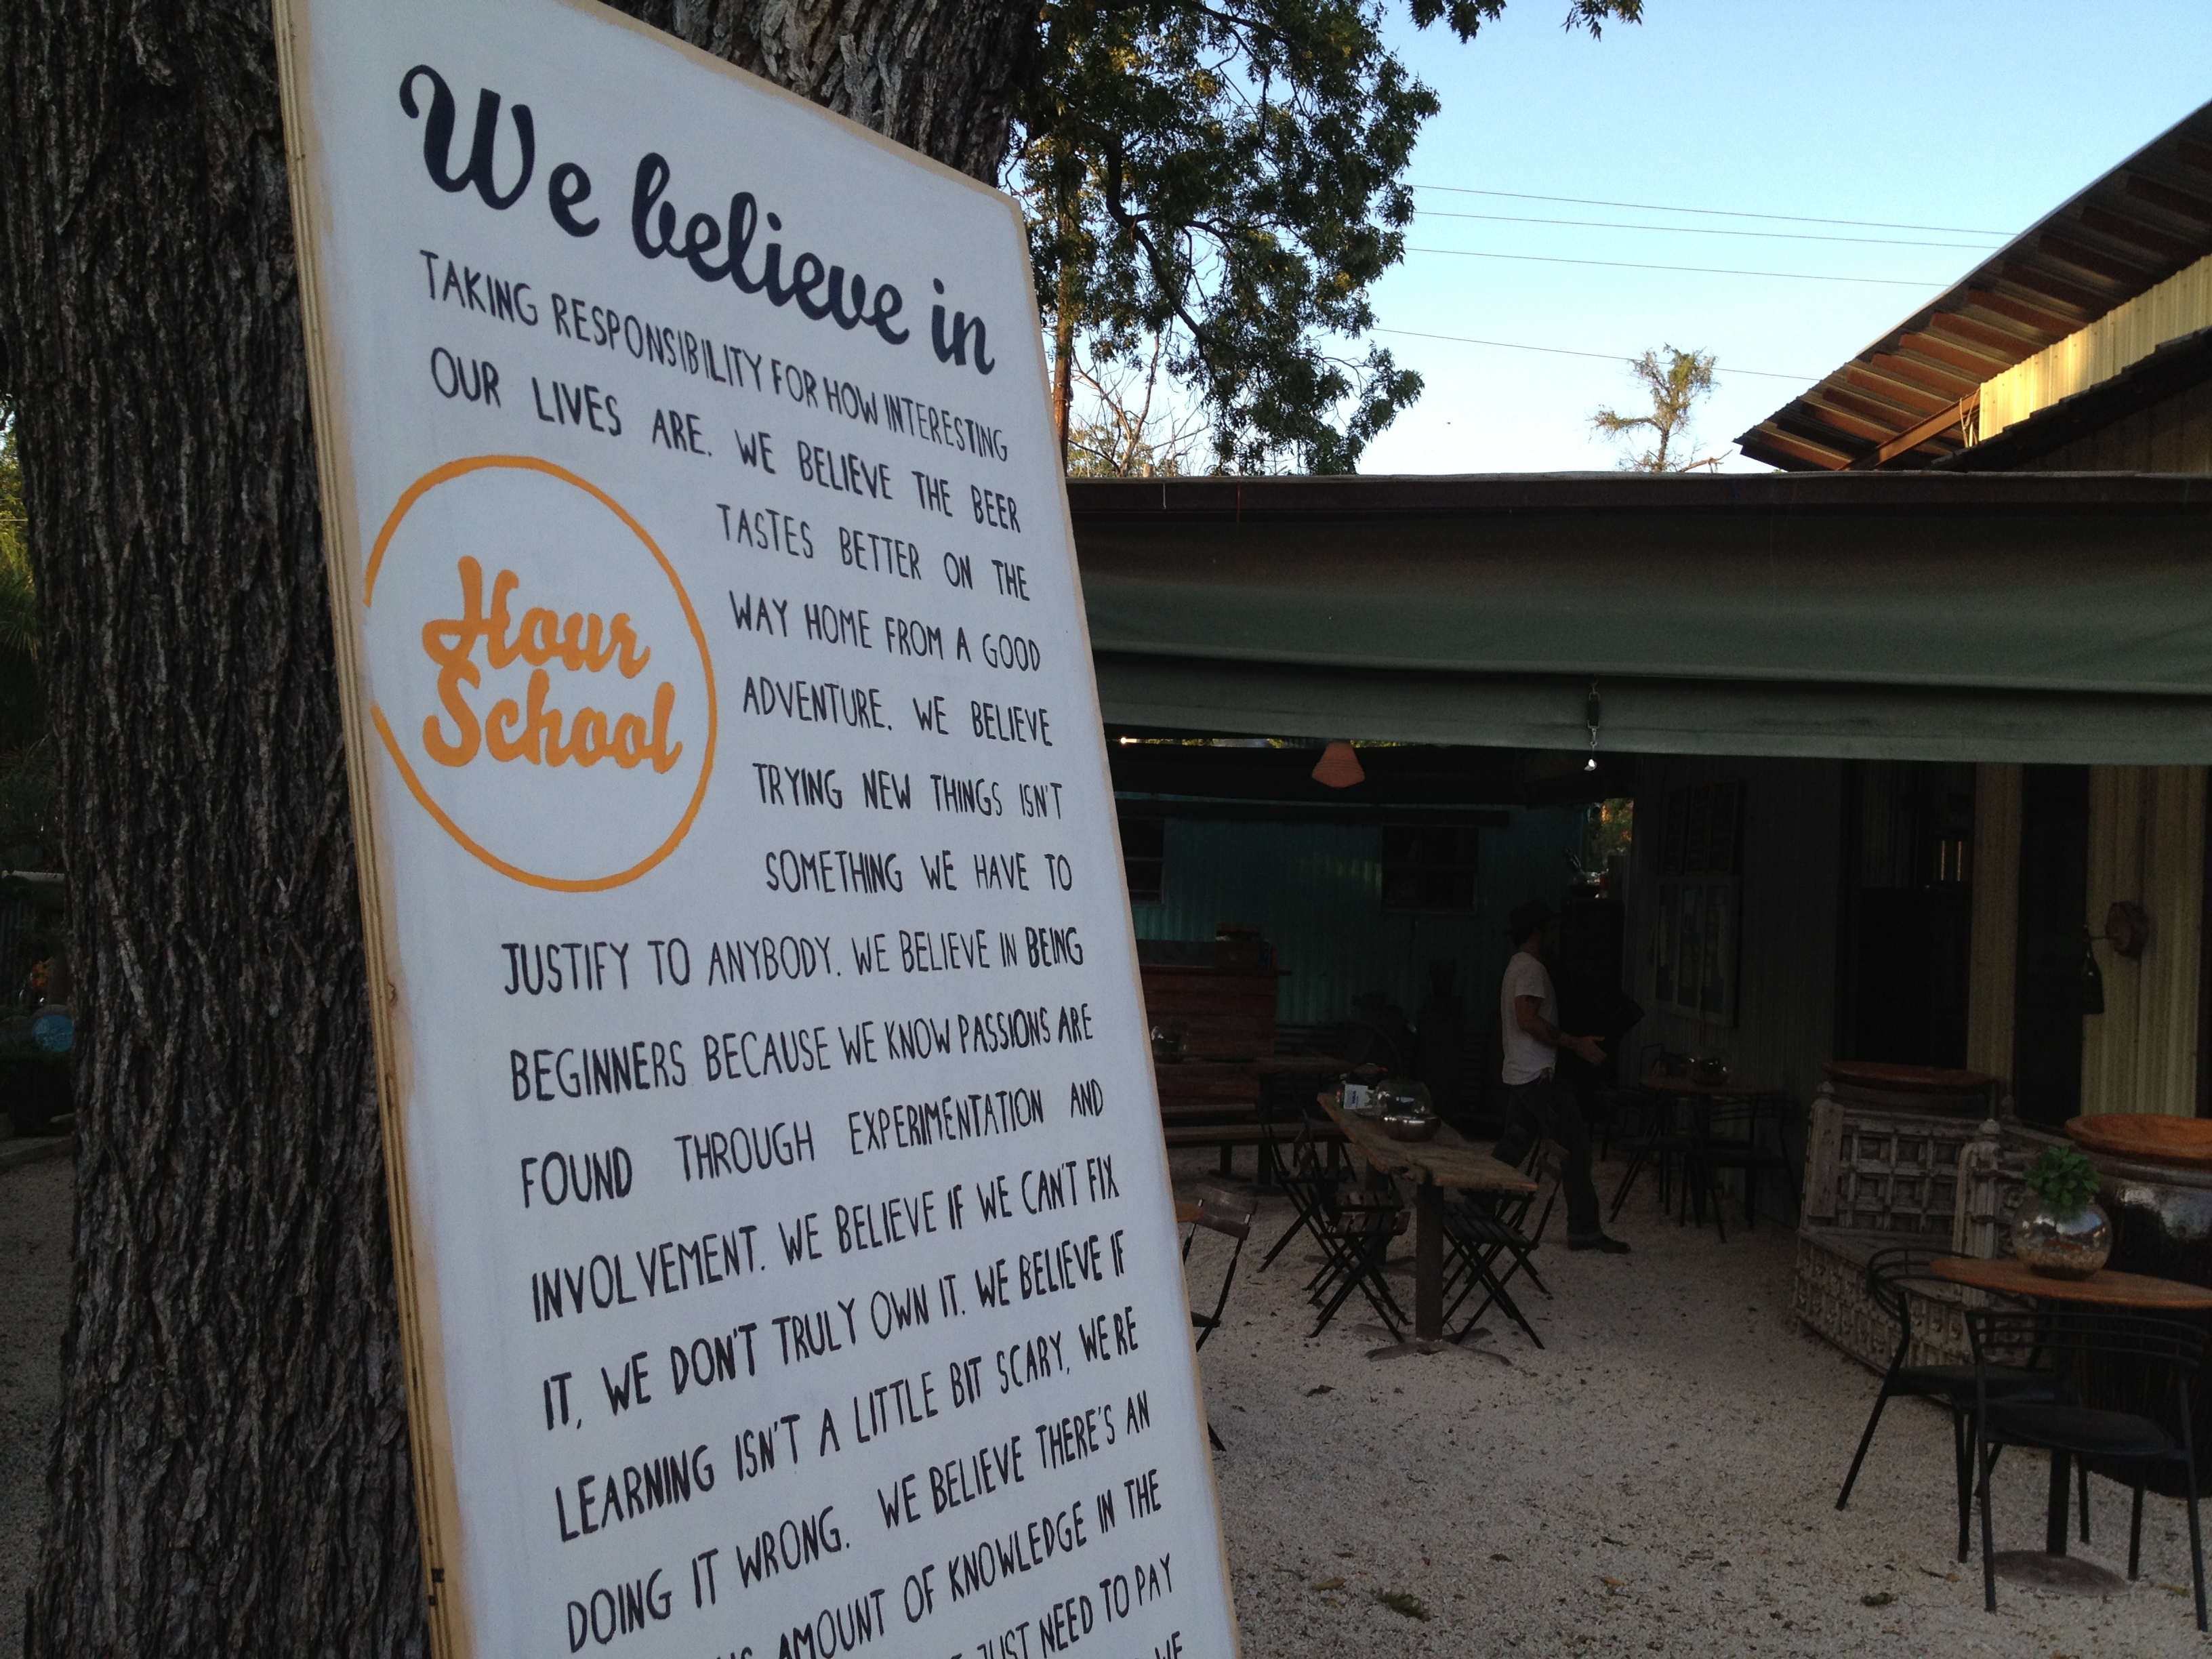 We believe in
TAKING RESPONSIBILITY FOR HOW INTERESTING
OUR LIVES ARE. WE BELIEVE THE BEER
TASTES BETTER ON THE
WAY HOME FROM A GOOD
ADVENTURE. WE BELIEVE
TRYING NEW THINGS ISN'T
SOMETHING WE HAVE TO
Hour
School
JUSTIFY TO ANYBODY. WE BELIEVE IN BEING
BEGINNERS BECAUSE WE KNOW PASSIONS ARE
FOUND THROUGH EXPERIMENTATION AND
INVOLVEMENT. WE BELIEVE IF WE CAN'T FIX
IT, WE DON'T TRULY OWN IT. WE BELIEVE IF
LEARNING ISN'T A LITTLE BIT SCARY, WE'RE
DOING IT WRONG. WE BELIEVE THERE'S AN
AMOUNT OF KNOWLEDGE IN THE
JUST NEED TO PAY
WE